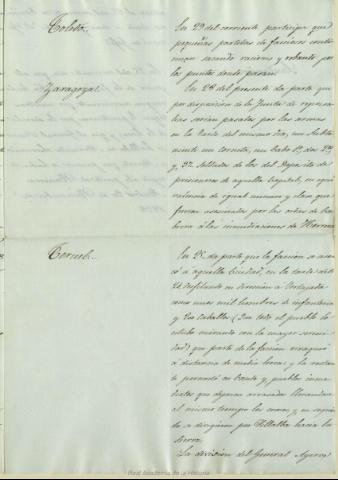 Toledo.
En 29 del corriente participa que
pequeñas partidas de facciosos conti-
nuan sacando racions y robando por
los puntos donde pasan.
Zaragoza.
En 28 del presente da parte que
por disposicion de la Junta de represa-
lias serian pasados por las armas
en la tarde del mismo dia, un Subte-
niente un corneta, un cabo 1º, dos 2ºs
y, 32 soldados de los del Deposito de
prisioneros de aquella Capital, en equi-
valencia de igual numero y clase que
fueron asesinados por las ordes de Ca-
brera á las inmediaciones de Herrera
Teruel.
En 25 da parte que la faccion se acer-
có a aquella Ciudad, en la tarde del
24 desfilando en direccion á
como unos mil hombres de infanteria
y 200 caballos (Que todo el pueblo lo
estubo mirando con la mayor sereni-
dad) que parte de la faccion
á distancia de media legua y la restan-
te pernoctó en Caudé y pueblos inme-
diatos que dejaron arruinados llevandose
al mismo tiempo las
da se dirigieron por Villalba hacia la
sierra.
La division del General Ayerve
Real Academia de la Historia